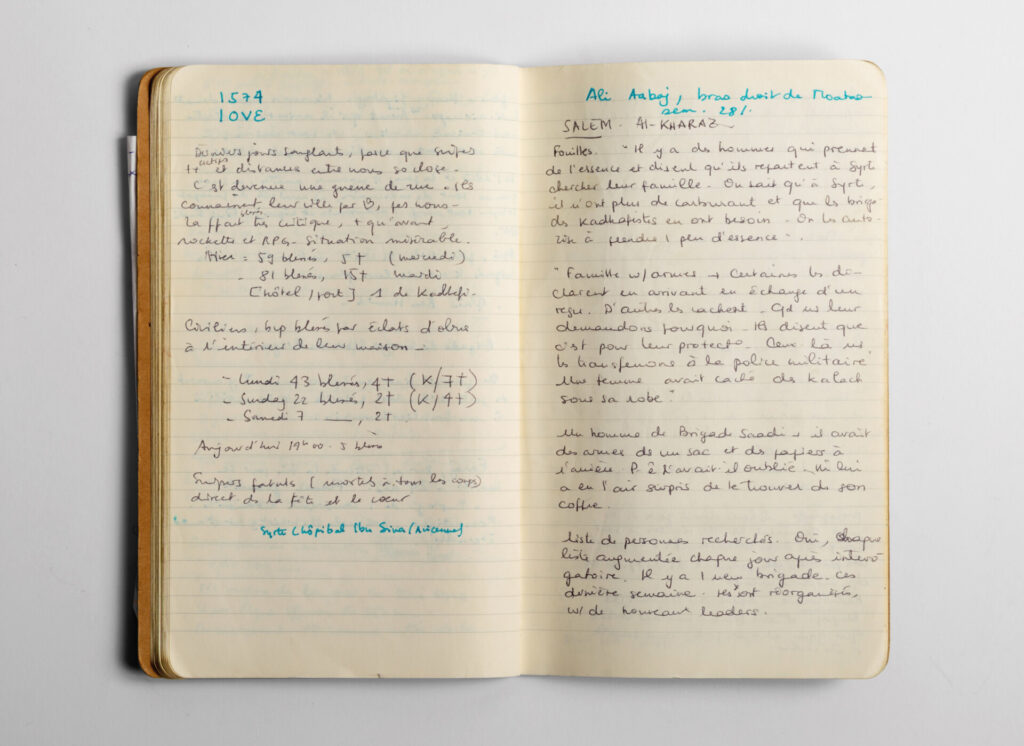 1574
IOVE
Derniers jours sanglants, parce que snipers
actifs
++ et distances entre nous so close.
C'est devenue une guerre de rue. Ils
connaissent leur ville par ♡, pas nous.
blessés
La très critique, + qu'avant
rockette et RPG. Situation misérable.
Hier = 59 blessés, 5† (mercredi)
- 81 blessés, 15† mardi
[hôtel / port] 1 de Kadhafi.
Civiliens, bcp blessés par éclats d'obus
à l'intérieur de leur maison -
- Lundi 43 blessés, 4† (K/7†)
- Sunday 22 blessés, 2† (K/4†)
- Samedi 7 —, 2†
Aujourd'hui 19h00. 3 blessés
Snipers fatals (mortels à tous les coups)
direct ds la tête et le cœur
Syrte (hôpital Ibn Sina (Avicenne)
Ali Aabaj, bras droit de
sem. 28/.
SALEM. Al-KHARAZ
Fouilles. "Il y a des hommes qui prennent
de l'essence et disent qu'ils repartent à Syrte
chercher leur famille. On sait qu'à Syrte,
il n'ont plus de carburant et que les brig
des Kadhafistes en ont besoin. On les auto-
rise à prendre 1 peu d'essence".
"Famille w/armes → Certaines les dé-
clarent en arrivant en échange d'un
reçu. D'autres les cachent. Qd ns leur
demandons pourquoi. Ils disent que
c'est pour leur protect°. Ceux là ns
les transferrons à la police militaire.
Une femme avait caché des kalach
sous sa robe"
Un homme de Brigade Saadi → il avait
des armes ds un sac et des papiers à
l'arrière. P. ê l'avait-il oublié. Mi lui
a eu l'air surpris de le trouver ds son
coffre.
Liste de personnes recherchés. Oui, chaque
liste augmentée chaque jour après interro
gatoire. Il y a 1 new brigade. Ces
dernière semaine. Ils sont réorganisés,
w/ de nouveaux leaders.